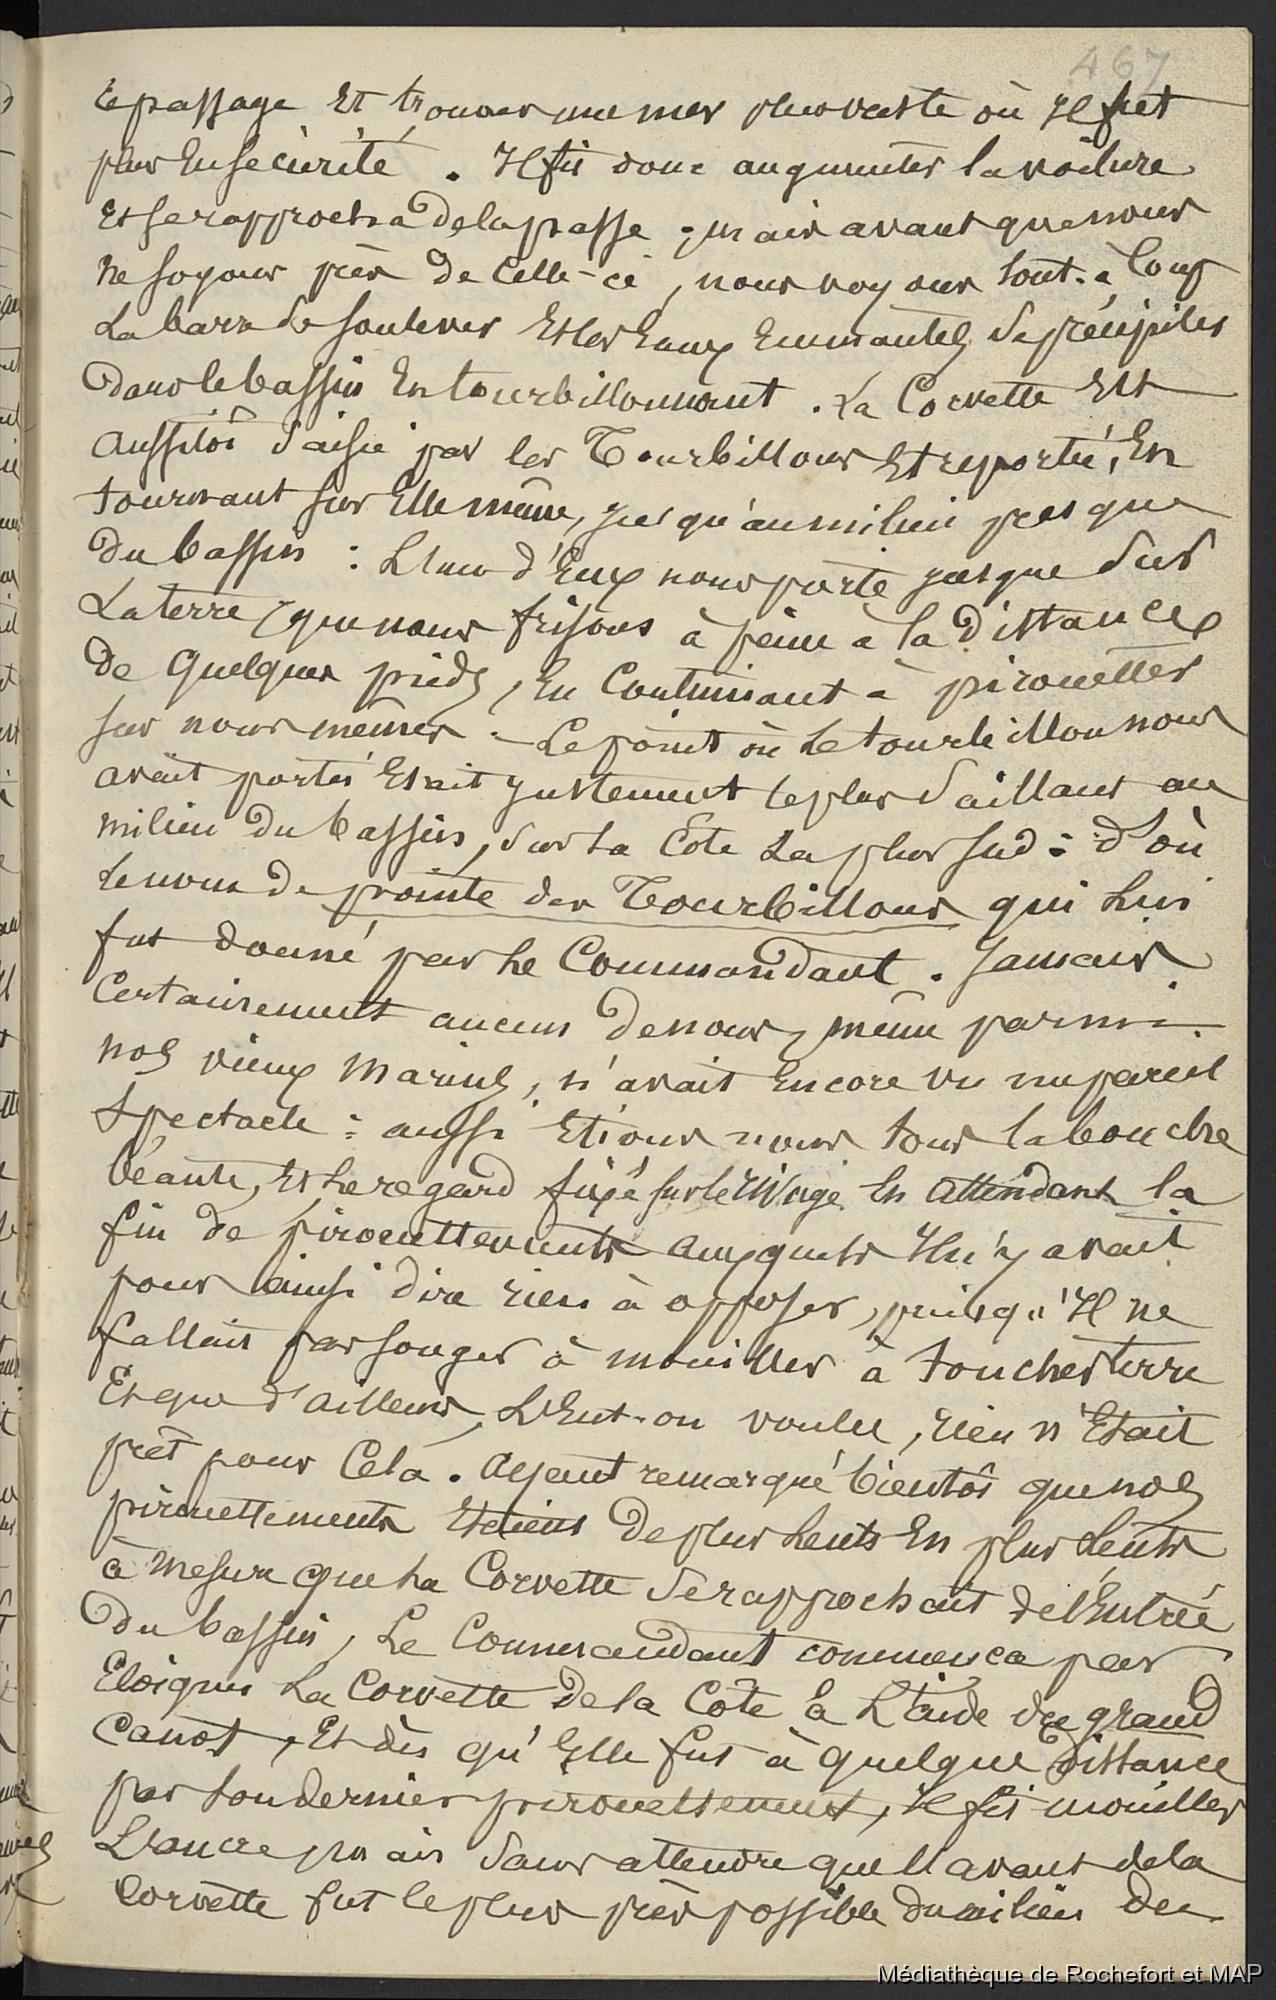 467
le passage Et trouver une mer plus vaste où Il fut
plus En sécurité. Il fit donc augmenter la voilure
Et se rapprocha de la passe ; mais avant que nous
ne soyons près de Celle-ci, nous voyons tout-à Coup
La barre se soulever Et les Eaux Emmontés se précipiter
dans le bassin En tourbillonnant. La Corvette Est
Aussitôt saisie par les Tourbillons Et reportée, En
tournant sur Elle même, jusqu'au milieu presque
du bassin : L'eau d'Eux nous porte jusque sur
La terre que nous frisons à peine à la distance
de Quelques pieds, En Continuant à pirouetter
sur nous mêmes. – Le point où Le tourbillon nous
avait portés Etait justement le plus saillant au
milieu du bassin, sur La Côte La plus sud : d'où
le nom de pointe des Tourbillons qui Lui
fut donné par Le Commandant. Jamais
Certainement aucun de nous, même parmi
nos vieux Marins, n'avait Encore vu un pareil
Spectacle : aussi Etions nous tous la bouche
béante, Et Le regard fixé sur le rivage En Attendant la
fin de pirouettements auxquels Il n'y avait
pour ainsi dire rien à opposer, puisqu'Il ne
fallait pas songer à mouiller à toucher terre
Et que d'ailleurs, L'Eut-on voulu, rien n'Etait
prêt pour Cela. Ayant remarqué bientôt que nos
pirouettements Etaient de plus Lents En plus Lents
à Mesure que La Corvette se rapprochait de l'Entrée
du bassin, Le Commandant commença par
Eloigner La Corvette de la Côte à L'aide du grand
Canot, Et dès qu'Elle fut à quelque distance
par son dernier pirouettement, Il fit mouiller
L'ancre mais sans attendre que l'avant de la
Corvette fut le plus près possible du milieu du
Médiathèque de Rochefort et MAP